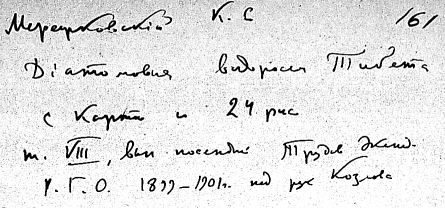 Мережковский К. С 161
Діатомовыя водоросли Тибета
с карт. и 24 рис
т. VIII, вып последний Трудов Экспд.
Р. Г. О. 1899–1901г. под рук Козлова